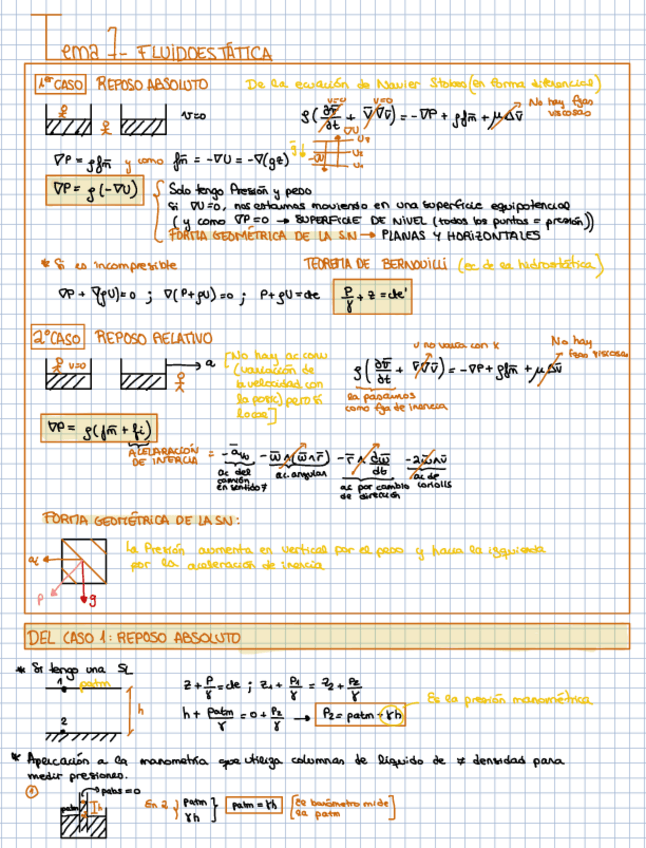 Tema 7- FLUIDOESTÁTICA
1er CASO REPOSO ABSOLUTO
De la ecuación de Navier Stokes (en forma diferencial)
v=0
v=0 v=0
ρ(∂v̄/∂t + v̄∇v̄) = -∇P + ρf̄m + μΔv̄
No hay fzas viscosas
∇P = ρf̄m y como f̄m = -∇U = -∇(gz)
∇P = ρ(-∇U)
Solo tengo Presión y peso
Si ∇U=0, nos estamos moviendo en una superficie equipotencial
(y como ∇P=0 → SUPERFICIE DE NIVEL (todos los puntos = presión))
FORMA GEOMÉTRICA DE LA SN → PLANAS Y HORIZONTALES
* Si es incompresible
TEOREMA DE BERNOUILLI (ec de la hidrostática)
∇P + ∇(ρU)=0 ; ∇(P+ρU)=0 ; P+ρU=cte
P/γ + z = cte'
2º CASO REPOSO RELATIVO
v=0
a
[No hay ac. conv
(variación de
la velocidad con
la posic) pero sí
local]
v no varía con x
No hay
fzas viscosas
ρ(∂v̄/∂t + v̄∇v̄) = -∇P + ρf̄m + μΔv̄
la pasamos
como fza de inercia
∇P = ρ(f̄m + f̄i)
ACELARACIÓN
DE INERCIA
= -āv0 - w̄∧(w̄∧r̄) - r̄∧dw̄/dt - 2w̄∧v̄
ac del
camión
en sentido ≠
ac. angular
ac por cambio
de dirección
ac de
coriolis
FORMA GEOMÉTRICA DE LA SN:
La Presión aumenta en vertical por el peso y hacia la izquierda
por la aceleración de inercia
P
g
DEL CASO 1: REPOSO ABSOLUTO
* Si tengo una SL
1 patm
h
2
z + P/γ = cte ; z1 + P1/γ = z2 + P2/γ
h + patm/γ = 0 + P2/γ → P2 = patm + γh
Es la presión manométrica
* Aplicación a la manometría que utiliza columnas de líquido de ≠ densidad para
medir presiones.
1
pabs=0
patm
h
En 2 patm
γh
patm = γh
[El barómetro mide
la patm]